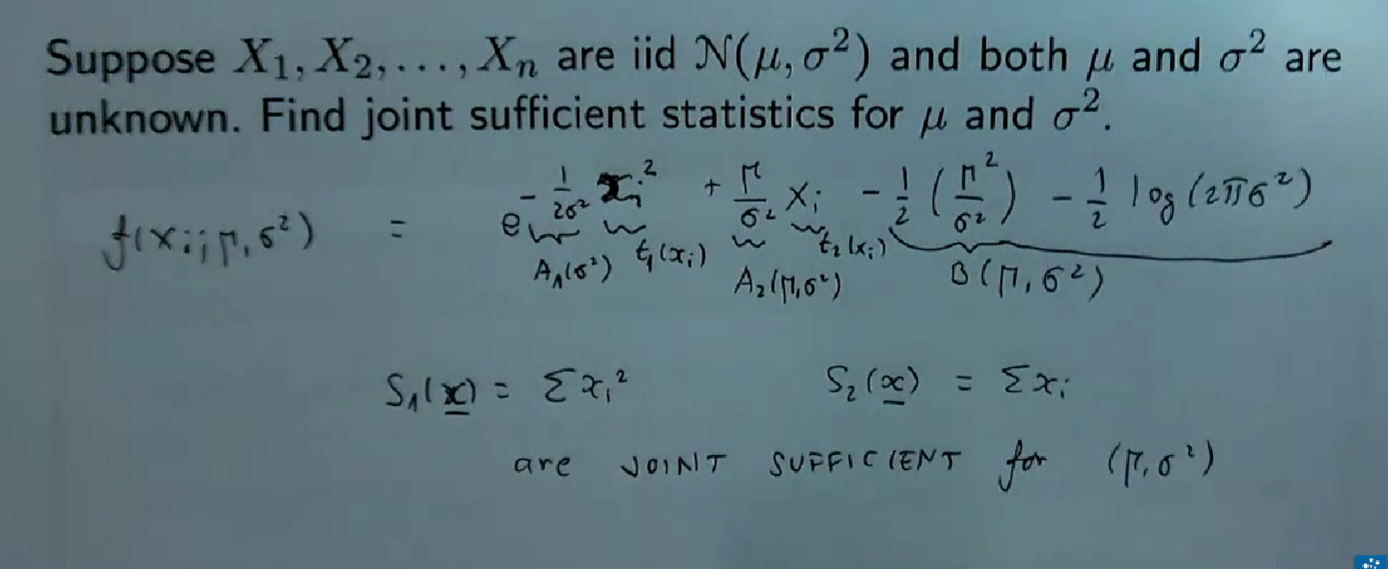 Suppose X₁, X₂, . . . , Xₙ are iid N(μ, σ²) and both μ and σ² are
unknown. Find joint sufficient statistics for μ and σ².
f(xᵢ; μ, σ²) = e^{-1/(2σ²) xᵢ² + μ/σ² xᵢ - 1/2 (μ²/σ²) - 1/2 log(2πσ²)}
A₁(σ²) t₁(xᵢ) A₂(μ, σ²) t₂(xᵢ) B(μ, σ²)
S₁(x) = Σxᵢ² S₂(x) = Σxᵢ
are JOINT SUFFICIENT for (μ, σ²)